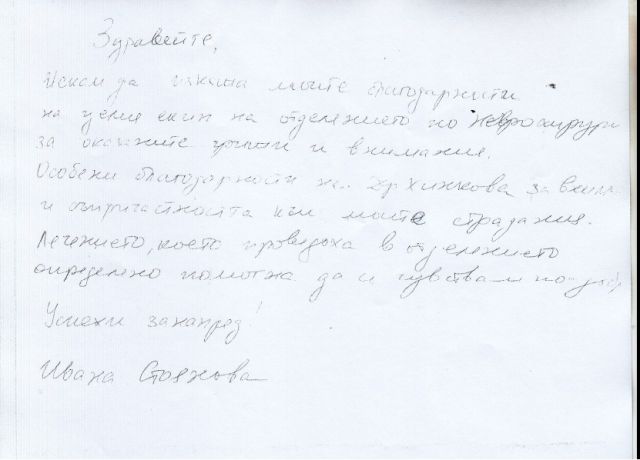 Здравейте,
Искам да изкажа моите благодарности
на целия екип на отделението по неврохирур
за оказаните грижи и внимание.
Особени благодарности на Др Хинкова за
и съпричастността към моите страдания.
Лечението, което проведоха в отделението
определено помогна да се чувствам по-
Успехи занапред!
Ивана Стоянова